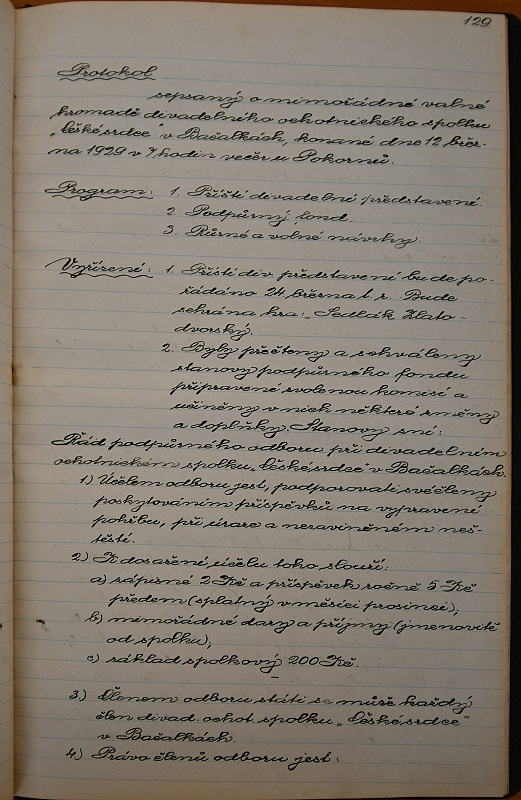 129.
Protokol
sepsaný o mimořádné valné
hromadě divadelního ochotnického spolku
„České srdce" v Bačalkách, konané dne 12. břez-
na 1929 v 7 hodin večer u Pokorných.
Program: 1. Příští divadelní představení.
2. Podpůrný fond.
3. Různé a volné návrhy.
Vyřízení: 1. Příští div. představení bude po-
řádáno 24. března t. r. Bude
sehrána hra: „Sedlák Zlato-
dvorský.
2. Byly přečteny a schváleny
stanovy podpůrného fondu
připravené zvolenou komisí a
učiněny v nich některé změny
a doplňky. Stanovy zní:
Řád podpůrného odboru při divadelním
ochotnickém spolku „České srdce" v Bačalkách.
1) Účelem odboru jest, podporovati své členy
poskytováním příspěvků na vypravení
pohřbu, při úraze a nezaviněném neš-
těstí.
2) K dosažení účelu toho slouží:
a) zápisné 2 Kč a příspěvek ročně 5 Kč
předem (splatný v měsíci prosinci),
b) mimořádné dary a příjmy (jmenovitě
od spolku),
c) základ spolkový 200 Kč.
3) Členem odboru státi se může každý
člen divad. ochot. spolku „České srdce"
v Bačalkách.
4) Právo členů odboru jest: